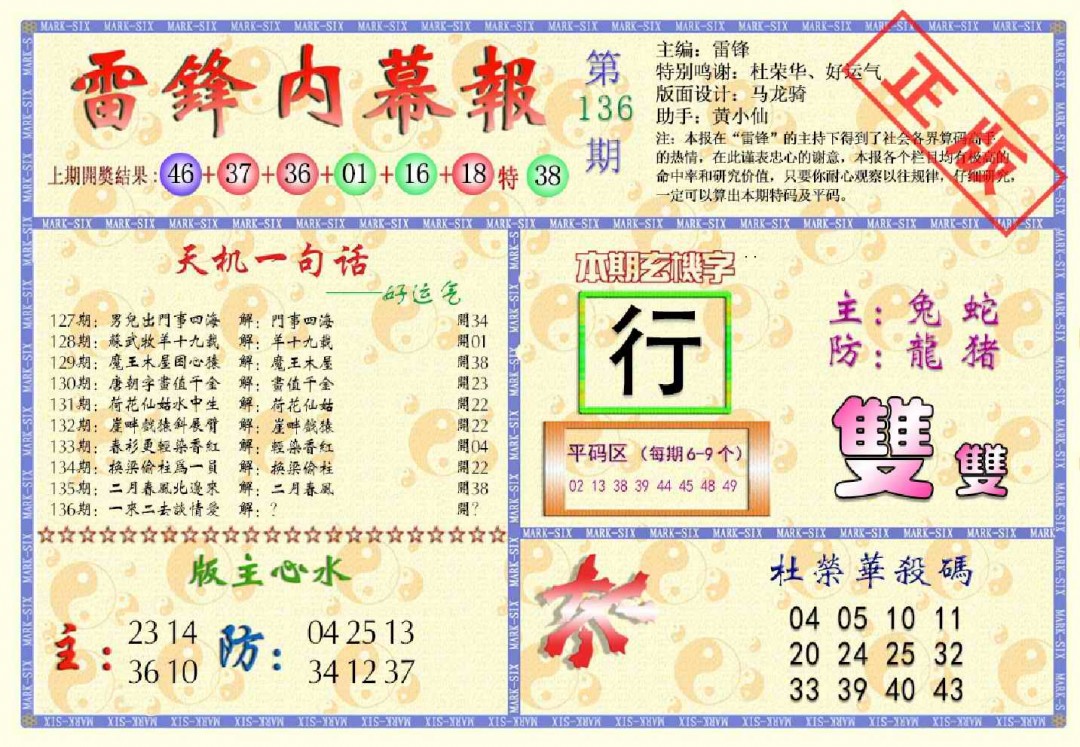 MARK-SIX MARK-SIX MARK-SIX MARK-SIX MARK-SIX MARK-SIX MARK-SIX MARK-SIX MARK-SIX
雷鋒内幕報
第
136
期
主编：雷锋
特别鸣谢：杜荣华、好运气
版面设计：马龙骑
助手：黄小仙
注：本报在“雷锋”的主持下得到了社会各界算码高手
的热情，在此谨表忠心的谢意，本报各个栏目均有极高的
命中率和研究价值，只要你耐心观察以往规律，仔细研究，
一定可以算出本期特码及平码。
正版
上期開獎结果：46+37+36+01+16+18特38
天机一句话
——好运气
127期：男兒出門事四海 解：門事四海 開34
128期：蘇武牧羊十九載 解：羊十九載 開01
129期：魔王木屋困心猿 解：魔王木屋 開38
130期：唐朝字畫值千金 解：畫值千金 開23
131期：荷花仙姑水中生 解：荷花仙姑 開22
132期：崖畔戲猿斜展臂 解：崖畔戲猿 開22
133期：春衫更輕染香紅 解：輕染香紅 開04
134期：换梁偷柱爲一員 解：换梁偷柱 開22
135期：二月春風北邊來 解：二月春風 開38
136期：一來二去談情愛 解：？ 開？
☆☆☆☆☆☆☆☆☆☆☆☆☆☆☆☆☆☆☆☆☆☆☆
本期玄機字
行
主：兔 蛇
防：龍 猪
平码区（每期6-9个）
02 13 38 39 44 45 48 49
雙雙
版主心水
主：
23 14
36 10
防：
04 25 13
34 12 37
杀
杜榮華殺碼
04 05 10 11
20 24 25 32
33 39 40 43